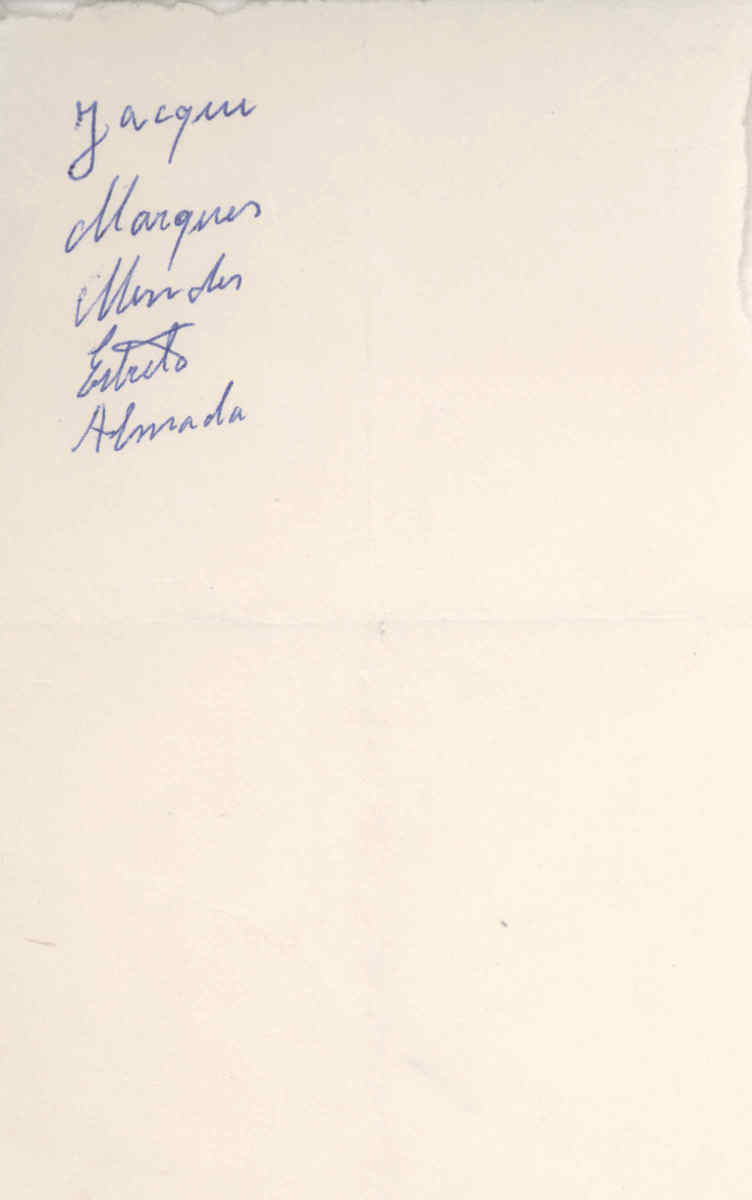 Jacqui
Marques
Mendes
Estreito
Almada